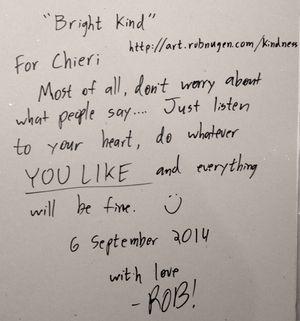 "Bright Kind"
http://art.robnugen.com/kindness
For Chieri
Most of all, don't worry about
what people say.... Just listen
to your heart, do whatever
YOU LIKE and everything
will be fine. :)
6 September 2014
with love
-ROB!